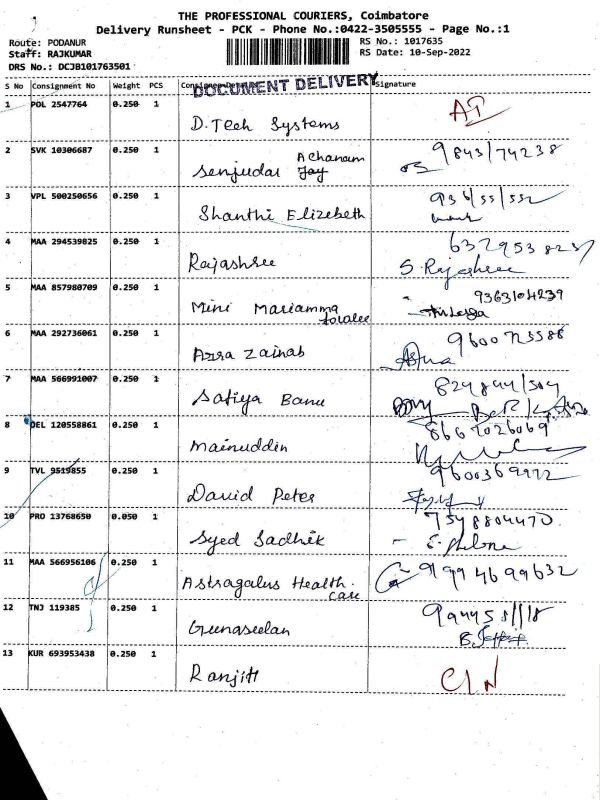 THE PROFESSIONAL COURIERS, Coimbatore
Delivery Runsheet - PCK - Phone No.:0422-3505555 - Page No.:1
Route: PODANUR
RS No.: 1017635
Staff: RAJKUMAR
RS Date: 10-Sep-2022
DRS No.: DCJB101763501
DOCUMENT DELIVERY
S No Consignment No Weight PCS Signature
1 POL 2547764 0.250 1 D.Tech Systems
2 SVK 10306687 0.250 1 Senjudai A Chanam Jay 9843174238
3 VPL 500250656 0.250 1 Shanthi Elizebeth
4 MAA 294539825 0.250 1 Rajashree
S. Rajashree
5 MAA 857980709 0.250 1 Mini Mariamma 9363104239
6 MAA 292736061 0.250 1 Azra Zainab 9600725588
7 MAA 566991007 0.250 1 Satiya Banu
8 DEL 120558861 0.250 1 Mainuddin 8667026069
9 TVL 9519855 0.250 1 David Peter 9600369972
10 PRO 13768650 0.050 1 Syed Sadhik 7548804470
11 MAA 566956106 0.250 1 Astragalus Health care 9994699632
12 TNJ 119385 0.250 1 Gunaseelan
13 KUR 693953438 0.250 1 Ranjith